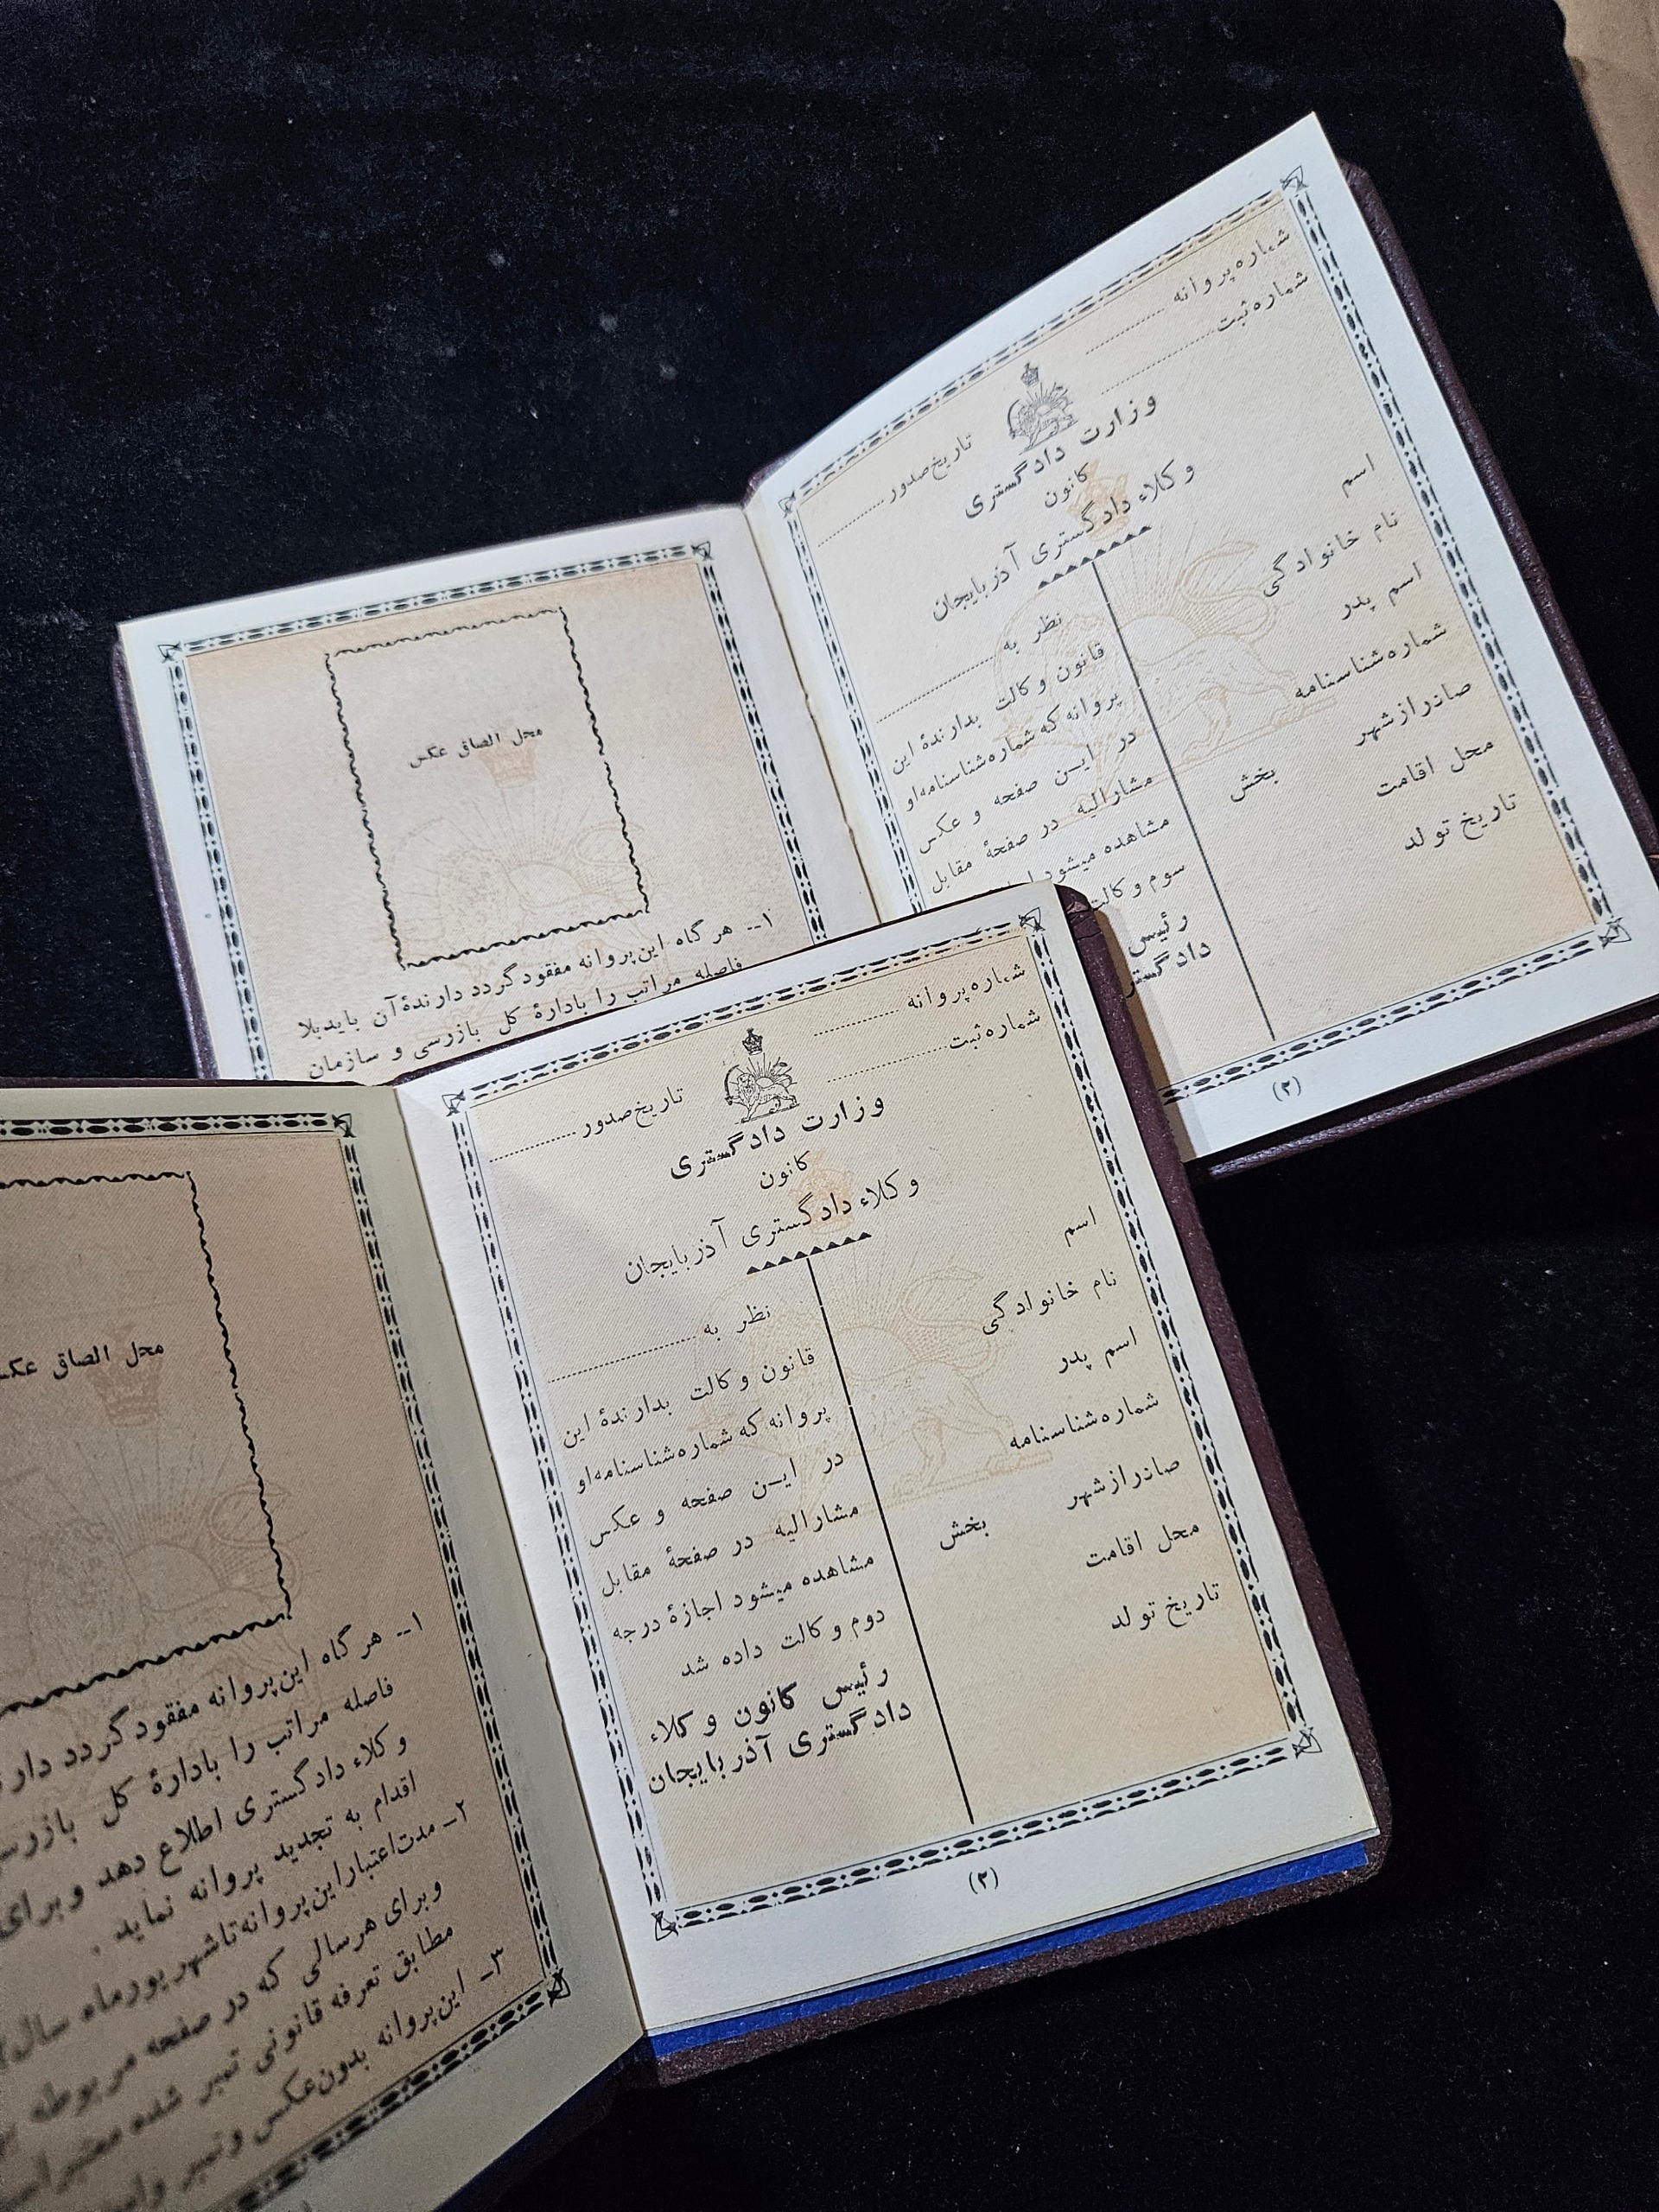 محل الصاق عکس
۱ــ هر گاه این پروانه مفقود گردد دارندهٔ آن باید بلا
فاصله مراتب را بادارهٔ کل بازرسی و سازمان
شماره پروانه
شماره ثبت
تاریخ صدور
وزارت دادگستری
کانون
وکلاء دادگستری آذربایجان
اسم
نام خانوادگی
اسم پدر
شماره شناسنامه
صادر از شهر
بخش
محل اقامت
تاریخ تولد
نظر به
قانون وکالت بدارندهٔ این
پروانه که شماره شناسنامه او
در ایـن صفحه و عکس
مشارالیه در صفحهٔ مقابل
مشاهده میشود
سوم وکالت
رئیس
(۲)
محل الصاق
۱ــ هر گاه این پروانه مفقود گردد
فاصله مراتب را بادارهٔ کل
وکلاء دادگستری اطلاع دهد و برای
اقدام به تجدید پروانه نماید .
۲ــ مدت اعتبار این پروانه تا شهریورماه سال
و برای هر سالی که در صفحه مربوطه
مطابق تعرفه قانونی تمبر شده
۳ــ این پروانه بدون عکس و تمبر
شماره پروانه
شماره ثبت
تاریخ صدور
وزارت دادگستری
کانون
وکلاء دادگستری آذربایجان
اسم
نام خانوادگی
اسم پدر
شماره شناسنامه
صادر از شهر
بخش
محل اقامت
تاریخ تولد
نظر به
قانون وکالت بدارندهٔ این
پروانه که شماره شناسنامه او
در ایـن صفحه و عکس
مشارالیه در صفحهٔ مقابل
مشاهده میشود اجازهٔ درجه
دوم وکالت داده شد
رئیس کانون وکلاء
دادگستری آذربایجان
(۲)